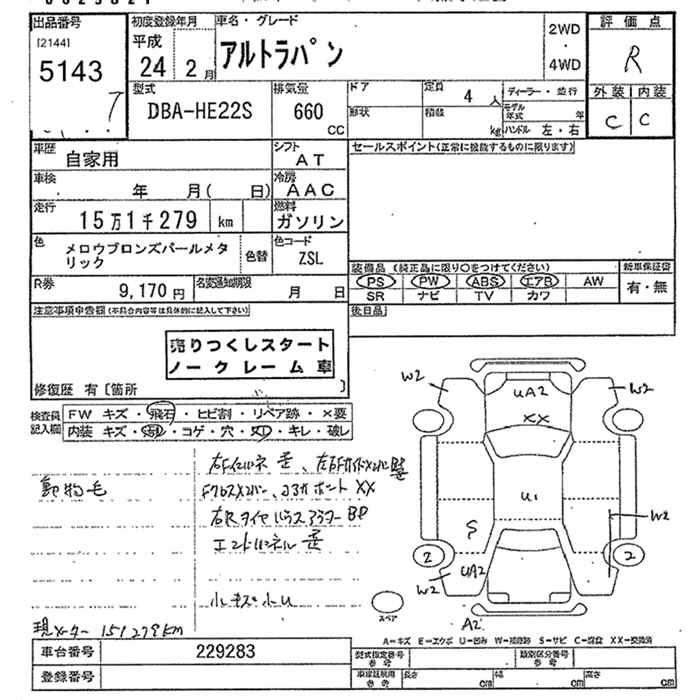 出品番号
[2144]
5143
7
初度登録年月
平成
24 2月
車名・グレード
アルトラパン
2WD
・
4WD
評価点
R
外装 内装
C C
型式
DBA-HE22S
排気量
660
CC
ドア
形状
定員
4人
積載
kg
ディーラー・並行
モデル年式 年
ハンドル 左・右
車歴
自家用
シフト
AT
車検
年 月( 日)
冷房
AAC
走行
15万1千279 km
燃料
ガソリン
色
メロウブロンズパールメタリック
色替
色コード
ZSL
R券
9,170円
名変通知期限
月 日
セールスポイント(正常に機能するものに限ります)
装備品 (純正品に限り○をつけてください)
PS PW ABS エアB AW
SR ナビ TV カワ
新車保証書
有・無
後日品
注意事項申告欄(不具合内容等は具体的に記入して下さい)
売りつくしスタート
ノークレーム車
修復歴 有[箇所 ]
検査員記入欄
FW キズ・飛石・ヒビ割・リペア跡・×要
内装 キズ・・コゲ・穴・・キレ・破レ
動物毛
右Fインサイドパネル
XX
右Rタイヤハウスアウター
エンドパネル
小キズ小U
現メーター 151279KM
W2
UA2
XX
W2
U1
S
W2
2
UA2
W2
2
A2
スペア
A=キズ E=エクボ U=凹み W=補修跡 S=サビ C=腐食 XX=交換済
車台番号
229283
登録番号
型式指定番号
参考
類別区分番号
参考
車庫証明用
参考
長さ cm
幅 cm
高さ cm